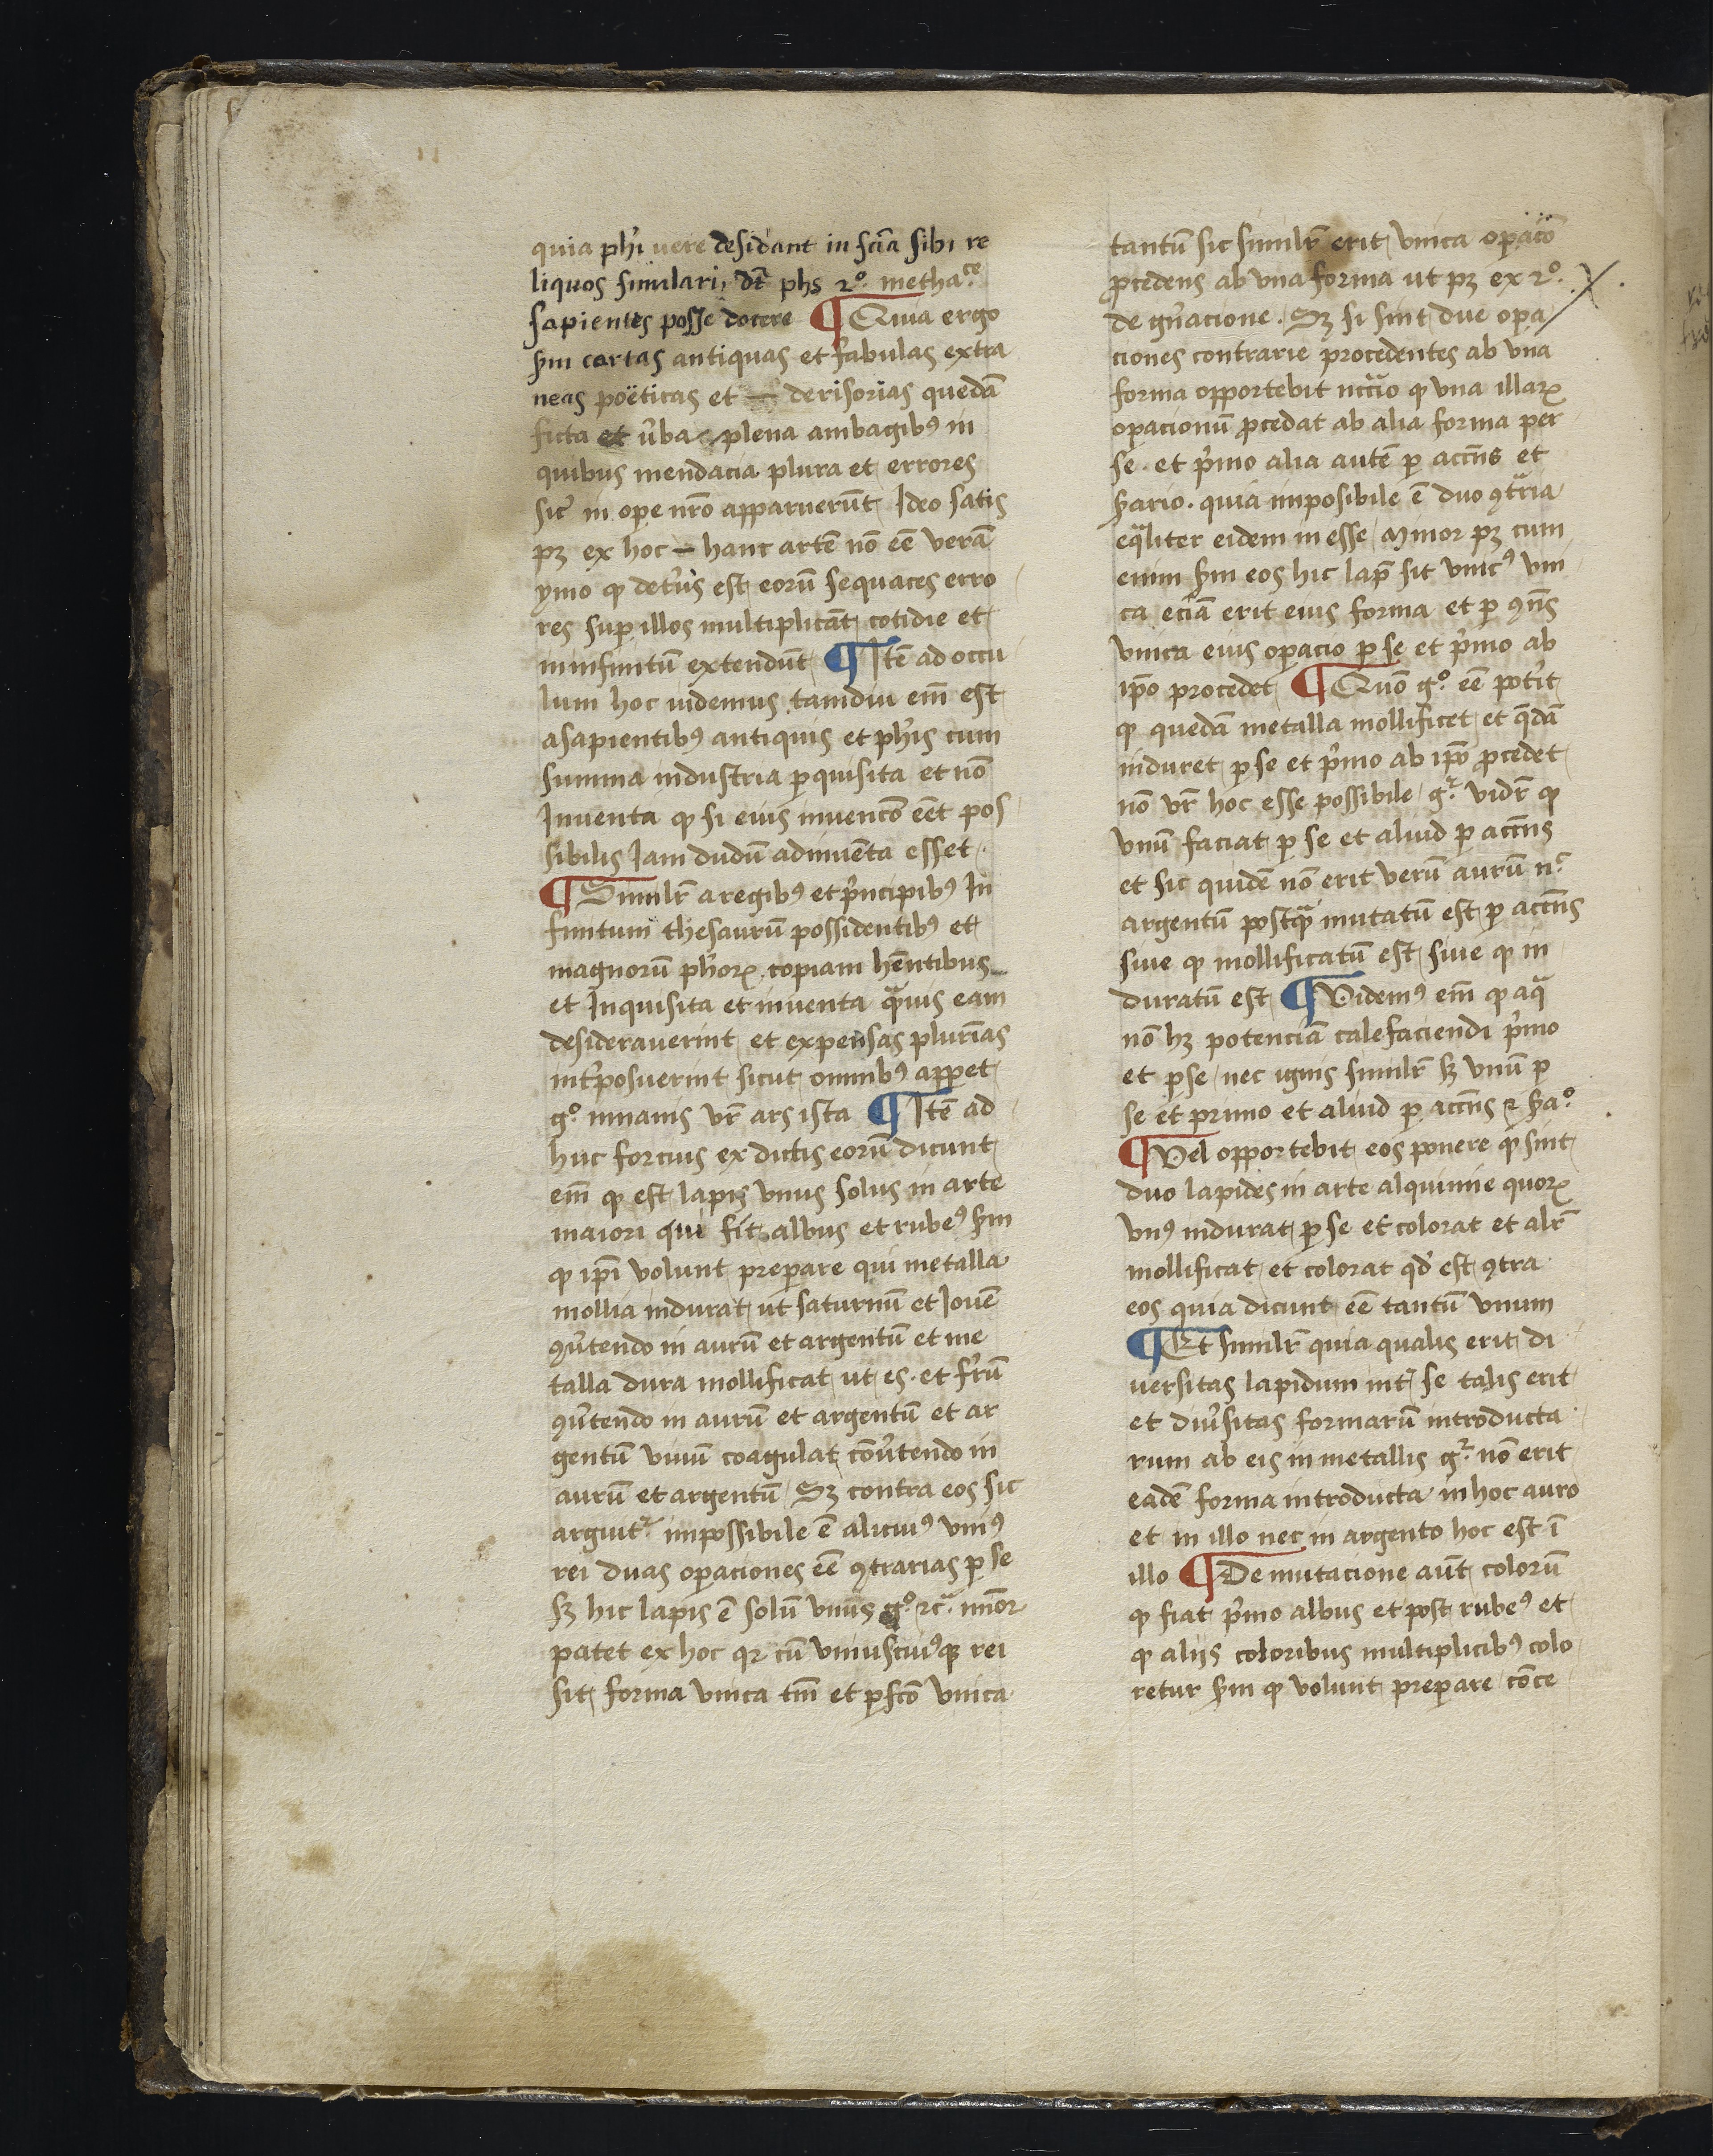 quia ph̓i uere desid̓ant in sc̄ia sibi re
liquos similari, dt̄ phs 2º. methaᶜᵉ.
sapientes posse docere ¶ Quia ergo
scd̄m cartas antiquas et fabulas extra
neas poëticas et — derisorias quedā
ficta et ūba plena ambagibꝰ in
quibus mendacia plura et errores
sic̄ in oꝑe nr̄o apparuerūt Ideo satis
pꝫ ex hoc — hanc artē nō eē verā
ymo ꝙ det̓iꝰ est eorū sequaces erro
res suꝑ illos multiplicāt cotidie et
in infinitū extendūt ¶ Itē ad occu
lum hoc uidemus tamdiu em̄ est
asapientibꝰ antiquis et ph̓is cum
summa industria ꝑquisita et nō
Inuenta ꝙ si eius inuencō eēt pos
sibilis Iam dudū adinuēta esset
¶ Similr̄ a regibꝰ et p̓ncipibꝰ In
finitum thesaurū possidentibꝰ et
magnorū ph̓oꝝ copiam hēntibus
et Inquisita et inuenta qᵃ̄uis eam
desiderauerint et expensas plurīas
int̓posuerint sicut omnibꝰ apꝑet
gº inanis vr̄ ars ista ¶ Itē ad
huc forcius ex dictis eorū dicunt
em̄ ꝙ est lapis vnus solus in arte
maiori qui fit albus et rubeꝰ scd̄m
ꝙ ip̄i volunt preꝑare qui metalla
mollia indurat ut saturnū et Iouē
ꝯūtendo in aurū et argentū et me
talla dura mollificat ut es. et fr̓ū
ꝯūtendo in aurū et argentū et ar
gentū viuū coagulat cōūtendo in
aurū et argentū Sꝫ contra eos sic
arguit᷑ impossibile ē alicuiꝰ vniꝰ
rei duas oꝑaciones eē ꝯtrarias ꝑ se
sꝫ hic lapis ē solū vnus gº ⁊cᵃ. mīor
patet ex hoc qꝛ cū vniuscuiꝰqꝫ rei
sit forma vnica tm̄ et ꝑfcō vnica
tantū sic similr̄ erit vnica oꝑacō
ꝓcedens ab vna forma ut pꝫ ex 2º.
de gn̄acione. Sꝫ si sint due oꝑa
ciones contrarie procedentes ab vna
forma opportebit nccᵃ̄io ꝙ vna illaꝝ
oꝑacionū ꝓcedat ab alia forma per
se. et p̓mo alia autē ꝑ accn̄s et
scd̄ario. quia imposibile ē duo ꝯtᵃria
eqᵃliter eidem in esse Minor pꝫ cum
enim scd̄m eos hic lap̄ sit vnicꝰ vni
ca eciā erit eius forma et ꝑ ꝯn̄s
vnica eius oꝑacio ꝑ se et p̓mo ab
ip̄o procedet ¶ Quō gº. eē pot̓it
ꝙ quedā metalla mollificet et qᵉdā
induret ꝑ se et p̓mo ab ip̄o ꝓcedet
nō vr̄ hoc esse possibile gᷣ vidr̄ ꝙ
vnū faciat ꝑ se et aliud ꝑ accn̄s
et sic quidē nō erit verū aurū nᶜ
argentū postqᵃ̄ mutatū est ꝑ accn̄s
siue ꝙ mollificatū est siue ꝙ in
duratū est ¶ Videmꝰ em̄ ꝙ aqᵃ
nō hꝫ potenciā calefaciendi p̓mo
et ꝑ se nec ignis similr̄ sꝫ vnū ꝑ
se et primo et aliud ꝑ accn̄s ⁊ scd̄aº.
¶ Vel opportebit eos ponere ꝙ sint
duo lapides in arte alquimie quoꝝ
vnꝰ indurat ꝑ se et colorat et alr̄
mollificat et colorat qd̓ est ꝯtra
eos quia dicunt eē tantū vnum
¶ Et similr̄ quia qualis erit di
uersitas lapidum int̓ se talis erit
et diūsitas formarū introducta
rum ab eis in metallis gᷣ nō erit
eadē forma introducta in hoc auro
et in illo nec in argento hoc est ī
illo ¶ De mutacione aūt colorū
ꝙ fiat p̓mo albus et post rubeꝰ et
ꝙ alijs coloribus multiplicibꝰ colo
retur scd̄m ꝙ volunt preꝑare cōce